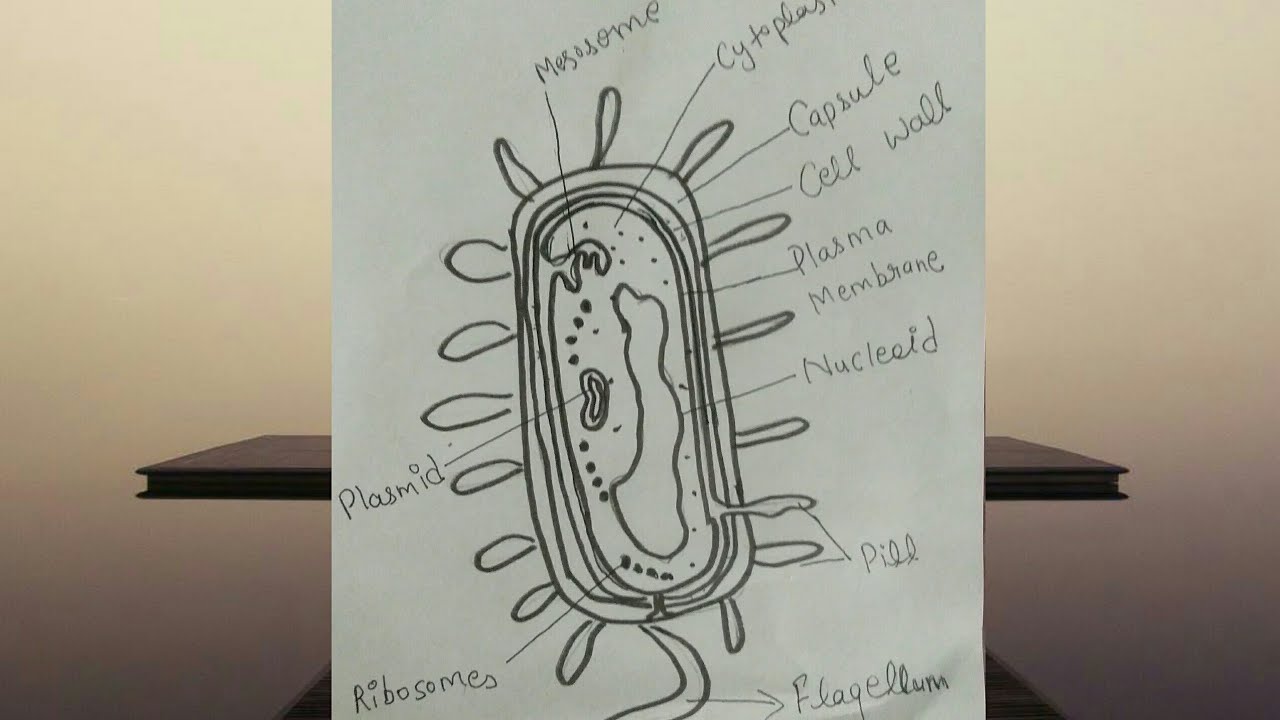 Mesosome
Cytoplas
Capsule
Cell Wall
Plasma
Membrane
Nucleoid
Plasmid
Pill
Ribosomes
Flagellum